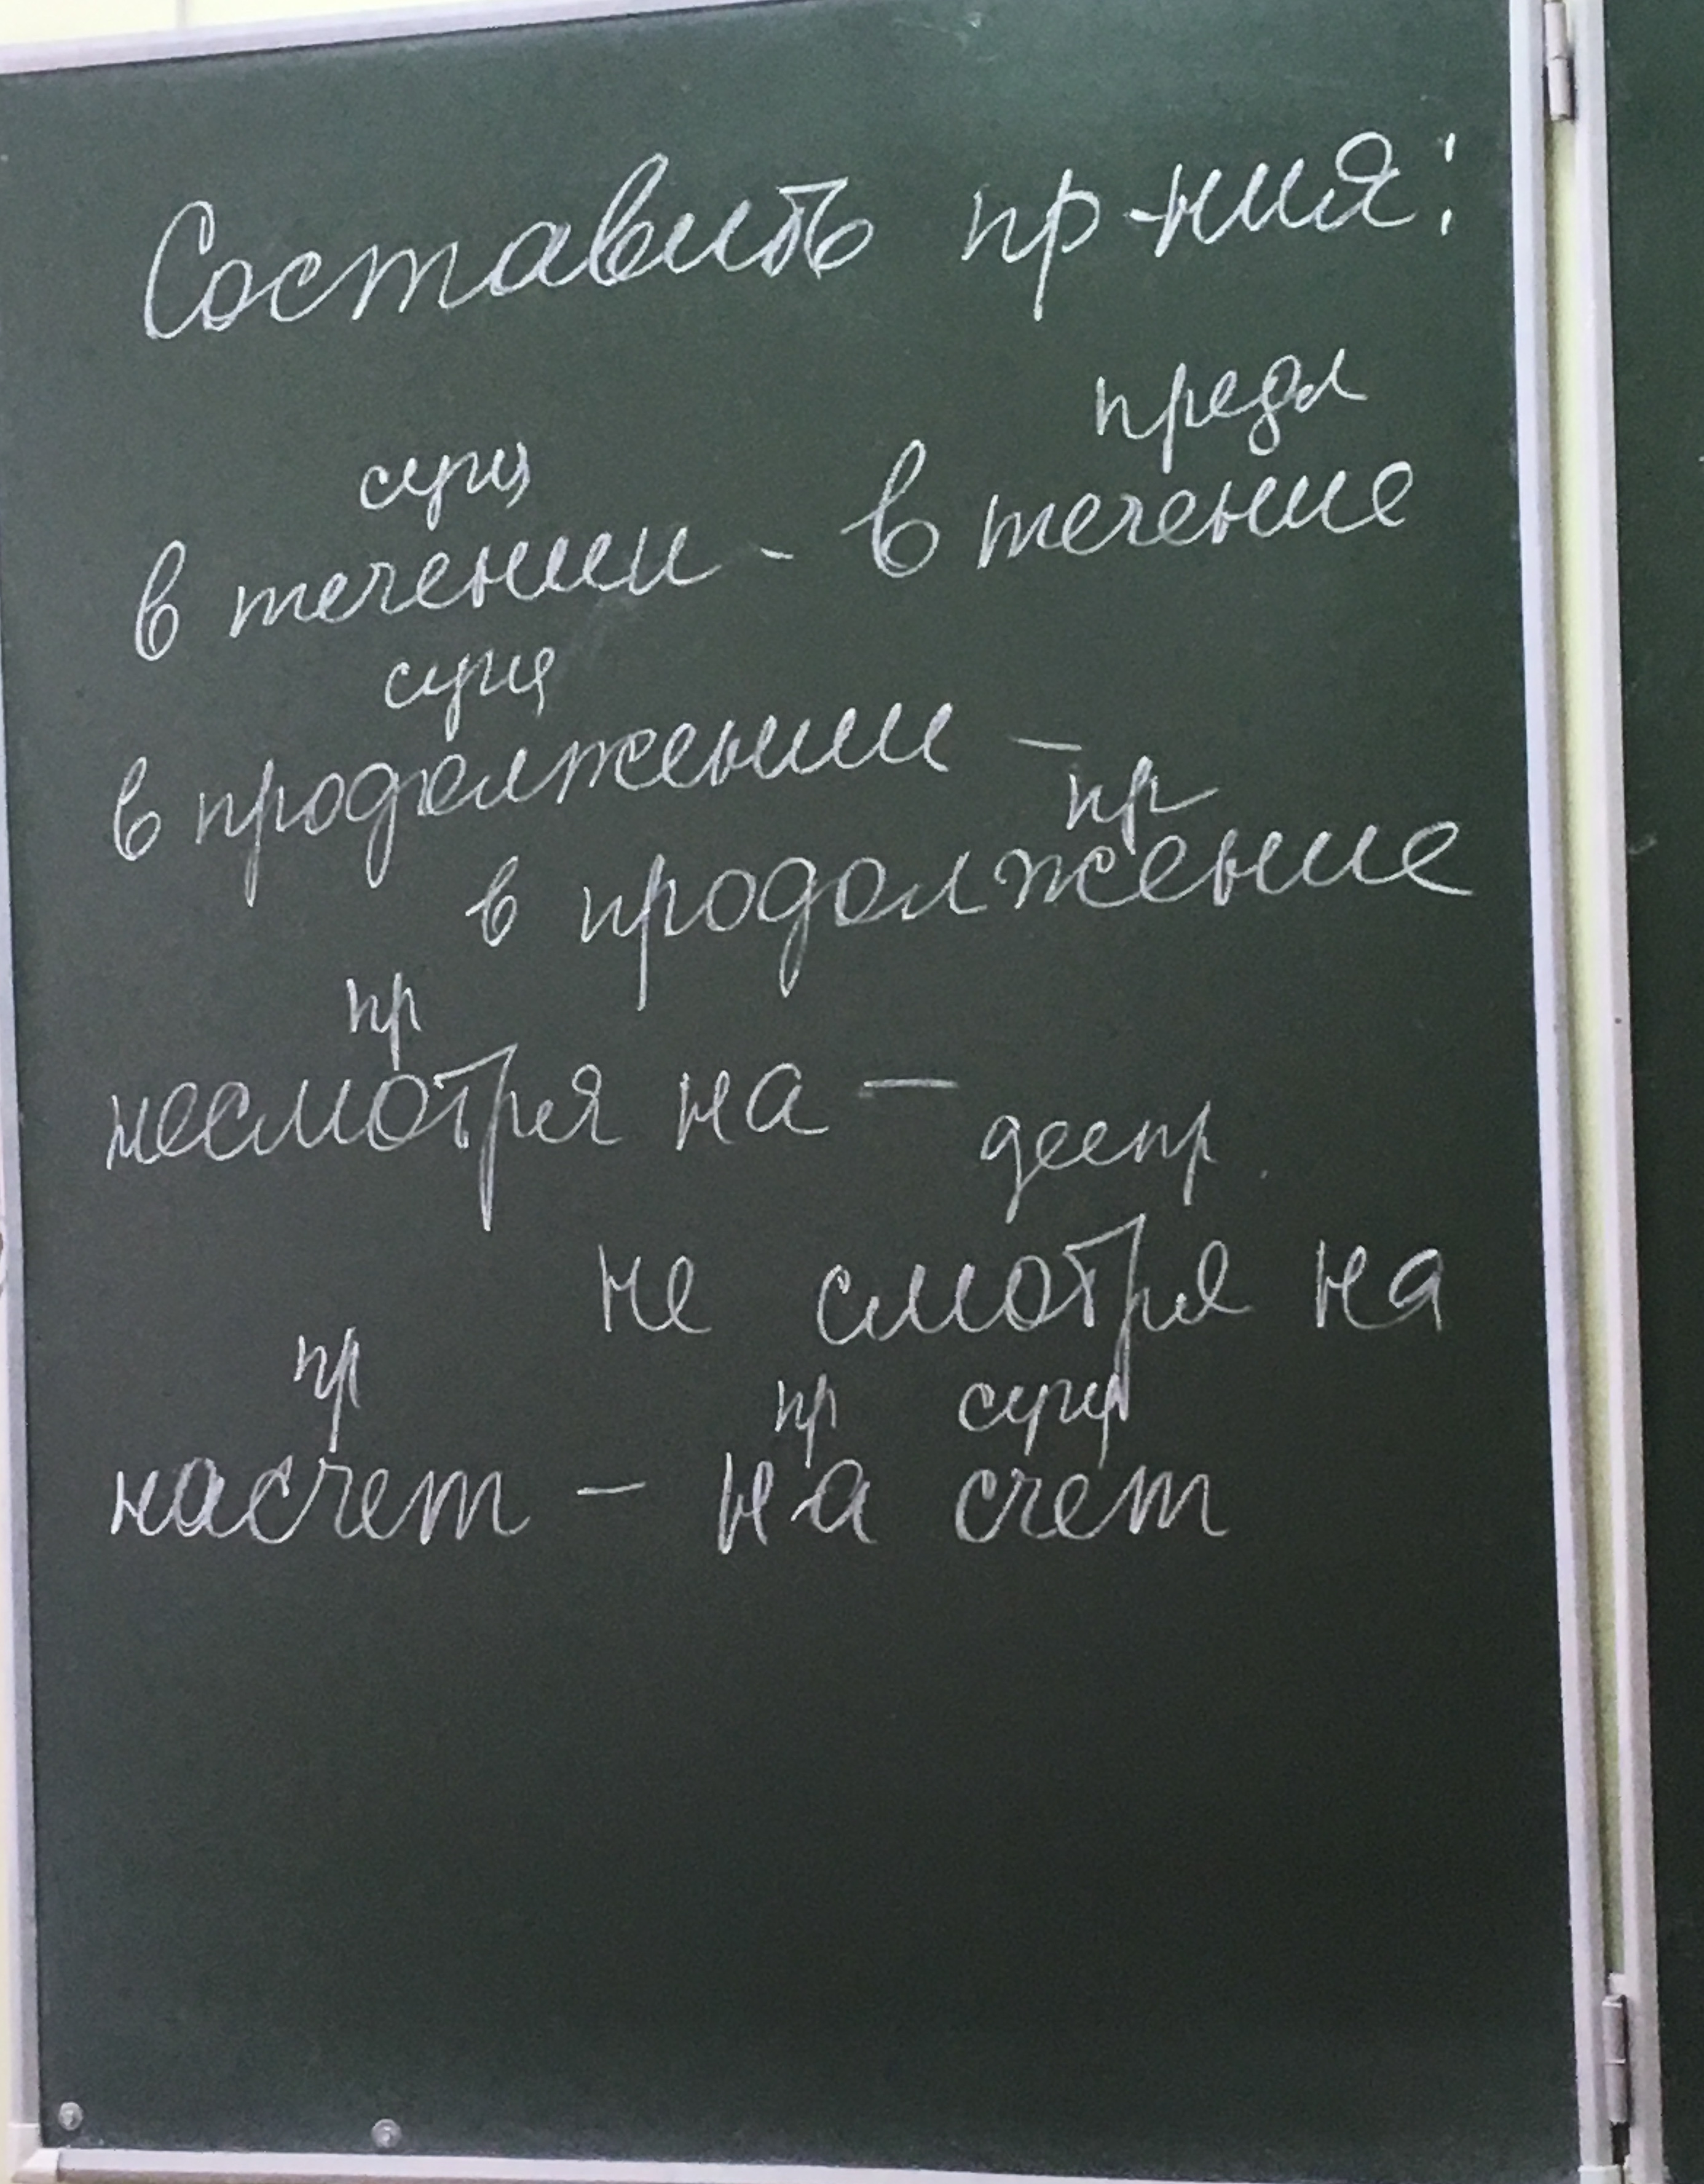 Составить пр-ния:
сущ предл
в течении - в течение
сущ
в продолжении -
пр
в продолжение
пр
несмотря на -
деепр.
не смотря на
пр пр сущ
насчет - на счет